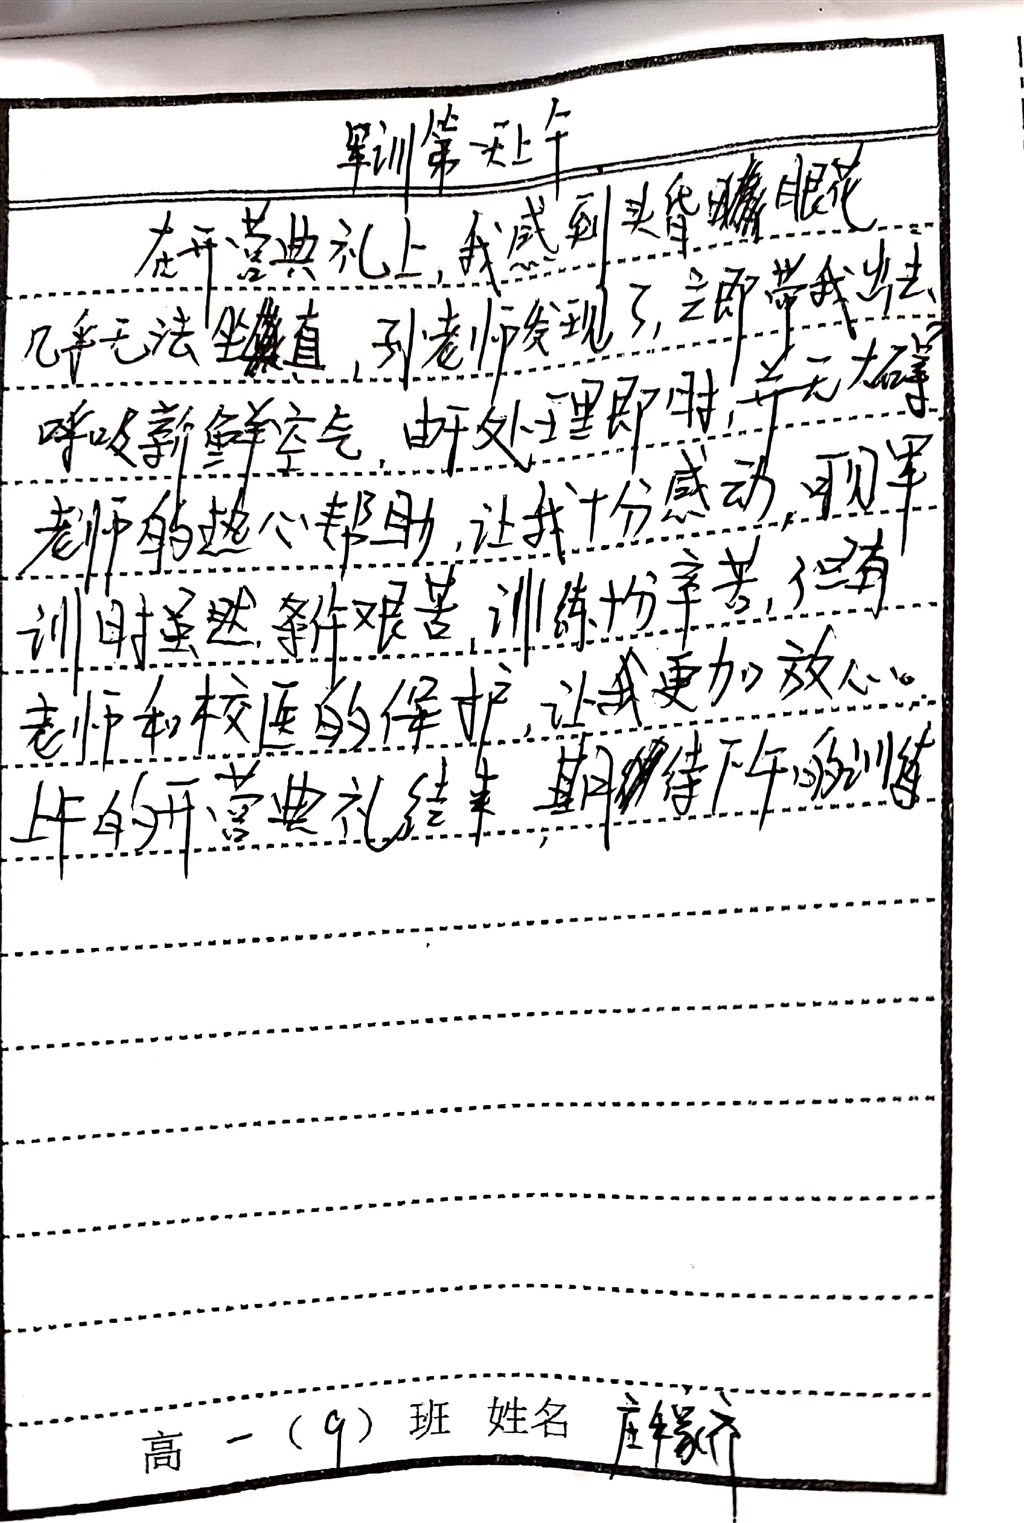 军训第一天上午
在开营典礼上,我感到头昏眼花
几乎无法坐直,孙老师发现了,立即带我出去
呼吸新鲜空气,由于处理即时,并无大碍
老师的热心帮助,让我十分感动,可见军
训时虽然条件艰苦,训练十分辛苦,但有
老师和校医的保护,让我更加放心。
上午的开营典礼结束,期待下午的训练
高一(9)班 姓名